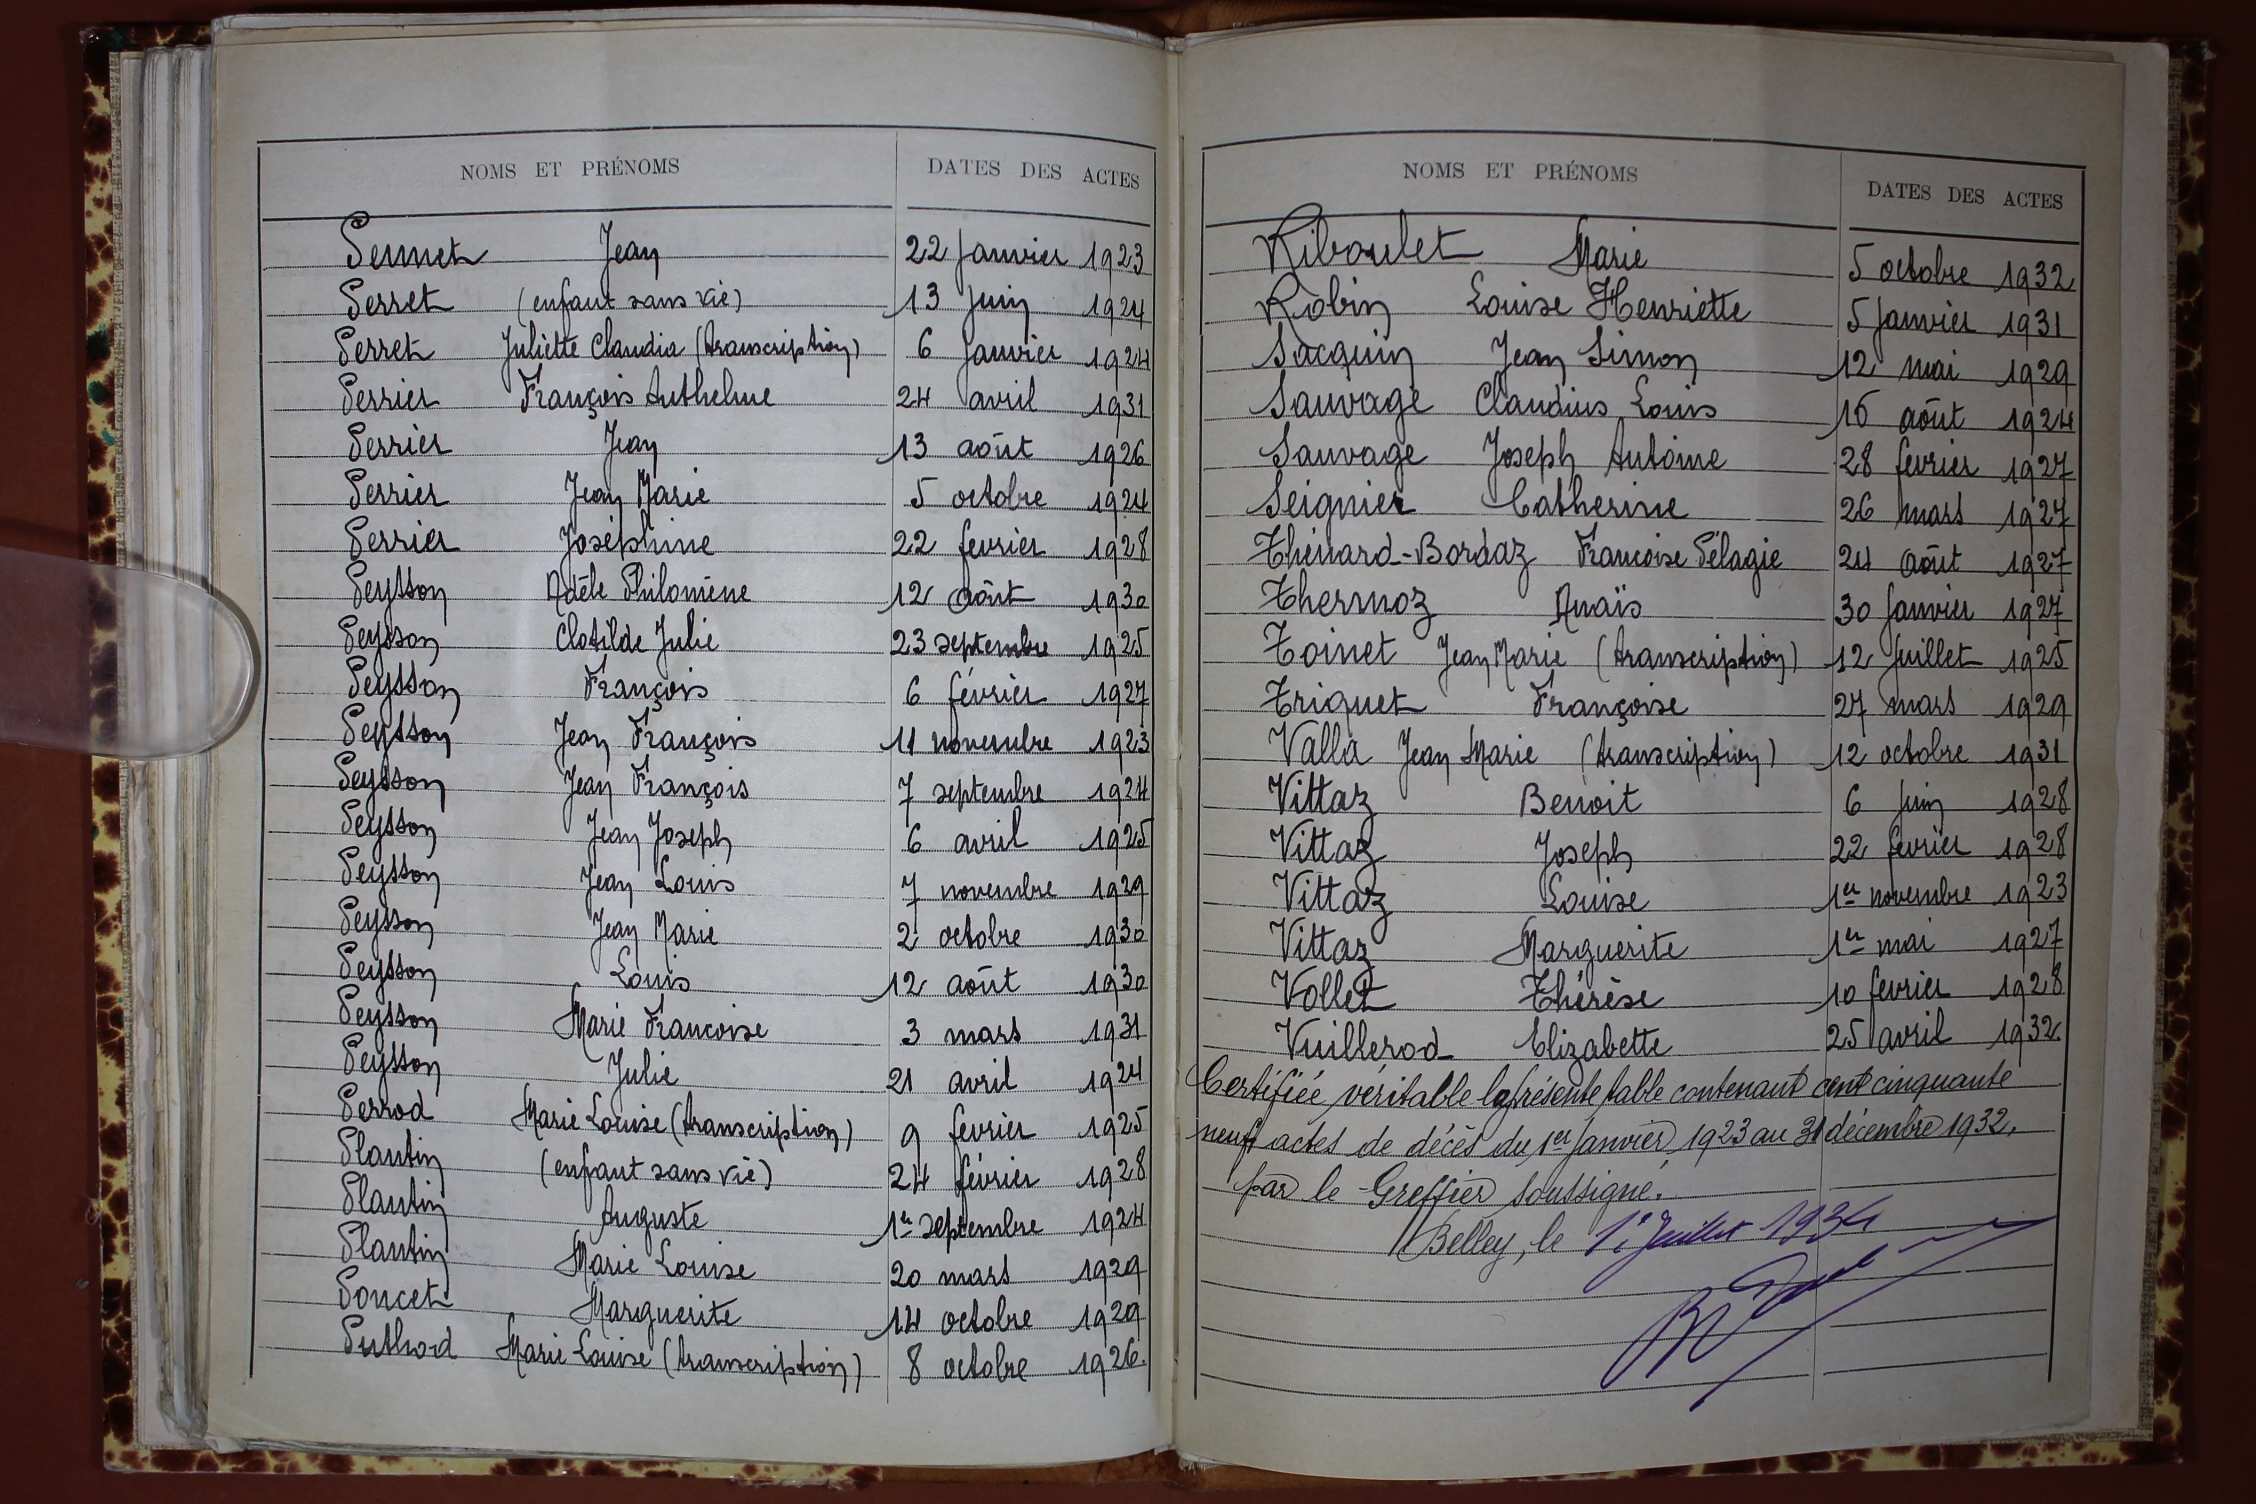 NOMS ET PRÉNOMS DATES DES ACTES
Pernet Jean 22 Janvier 1923
Perret (enfant sans vie) 13 Juin 1924
Perret Juliette Claudia (transcription) 6 Janvier 1924
Perrier François Anthelme 24 avril 1931
Perrier Jean 13 août 1926
Perrier Jean Marie 5 octobre 1924
Perrier Joséphine 22 février 1928
Peysson Adèle Philomène 12 août 1930
Peysson Clotilde Julie 23 septembre 1925
Peysson François 6 février 1927
Peysson Jean François 11 novembre 1923
Peysson Jean François 7 septembre 1924
Peysson Jean Joseph 6 avril 1925
Peysson Jean Louis 7 novembre 1929
Peysson Jean Marie 2 octobre 1930
Peysson Louis 12 août 1930
Peysson Marie Francoise 3 mars 1931
Peysson Julie 21 avril 1924
Perrod Marie Louise (transcription) 9 février 1925
Plantin (enfant sans vie) 24 février 1928
Plantin Auguste 1er septembre 1924
Plantin Marie Louise 20 mars 1929
Poncet Marguerite 14 octobre 1929
Puthod Marie Louise (transcription) 8 octobre 1926.
NOMS ET PRÉNOMS DATES DES ACTES
Riboulet Marie 5 octobre 1932
Robin Louise Henriette 5 Janvier 1931
Sacquin Jean Simon 12 mai 1929
Sauvage Claudius Louis 16 août 1924
Sauvage Joseph Antoine 28 février 1927
Seignier Catherine 26 mars 1927
Thénard-Bordaz Francoise Pélagie 24 août 1927
Thermoz Anaïs 30 Janvier 1927
Toinet Jean Marie (transcription) 12 Juillet 1925
Triquet Françoise 27 mars 1929
Valla Jean Marie (transcription) 12 octobre 1931
Vittaz Benoit 6 Juin 1928
Vittaz Joseph 22 février 1928
Vittaz Louise 1er novembre 1923
Vittaz Marguerite 1er mai 1927
Vollet Thérèse 10 février 1928
Vuillerod Elizabette 25 avril 1932.
Certifiée véritable la présente table contenant cent cinquante
neuf actes de décès du 1er Janvier 1923 au 31 décembre 1932.
par le Greffier soussigné.
Belley, le 1er Juillet 1934